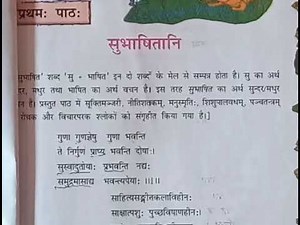 प्रथमः पाठः
सुभाषितानि
सुभाषित' शब्द 'सु - भाषित' इन दो शब्दों के मेल से सम्पन्न होता है। सु का अर्थ
दर, मधुर तथा भाषित का अर्थ वचन है। इस तरह सुभाषित का अर्थ सुन्दर/मधुर
न है। प्रस्तुत पाठ में सूक्तिमञ्जरी, नीतिशतकम्, मनुस्मृतिः, शिशुपालवधम्, पञ्चतन्त्रम्
रोचक और विचारपरक श्लोकों को संगृहीत किया गया है।]
गुणा गुणज्ञेषु गुणा भवन्ति
ते निर्गुणं प्राप्य भवन्ति दोषाः।
सुस्वादुतोयाः प्रभवन्ति नद्यः
समुद्रमासाद्य भवन्त्यपेयाः ॥1॥
साहित्यसङ्गीतकलाविहीनः
साक्षात्पशुः पुच्छविषाणहीनः।